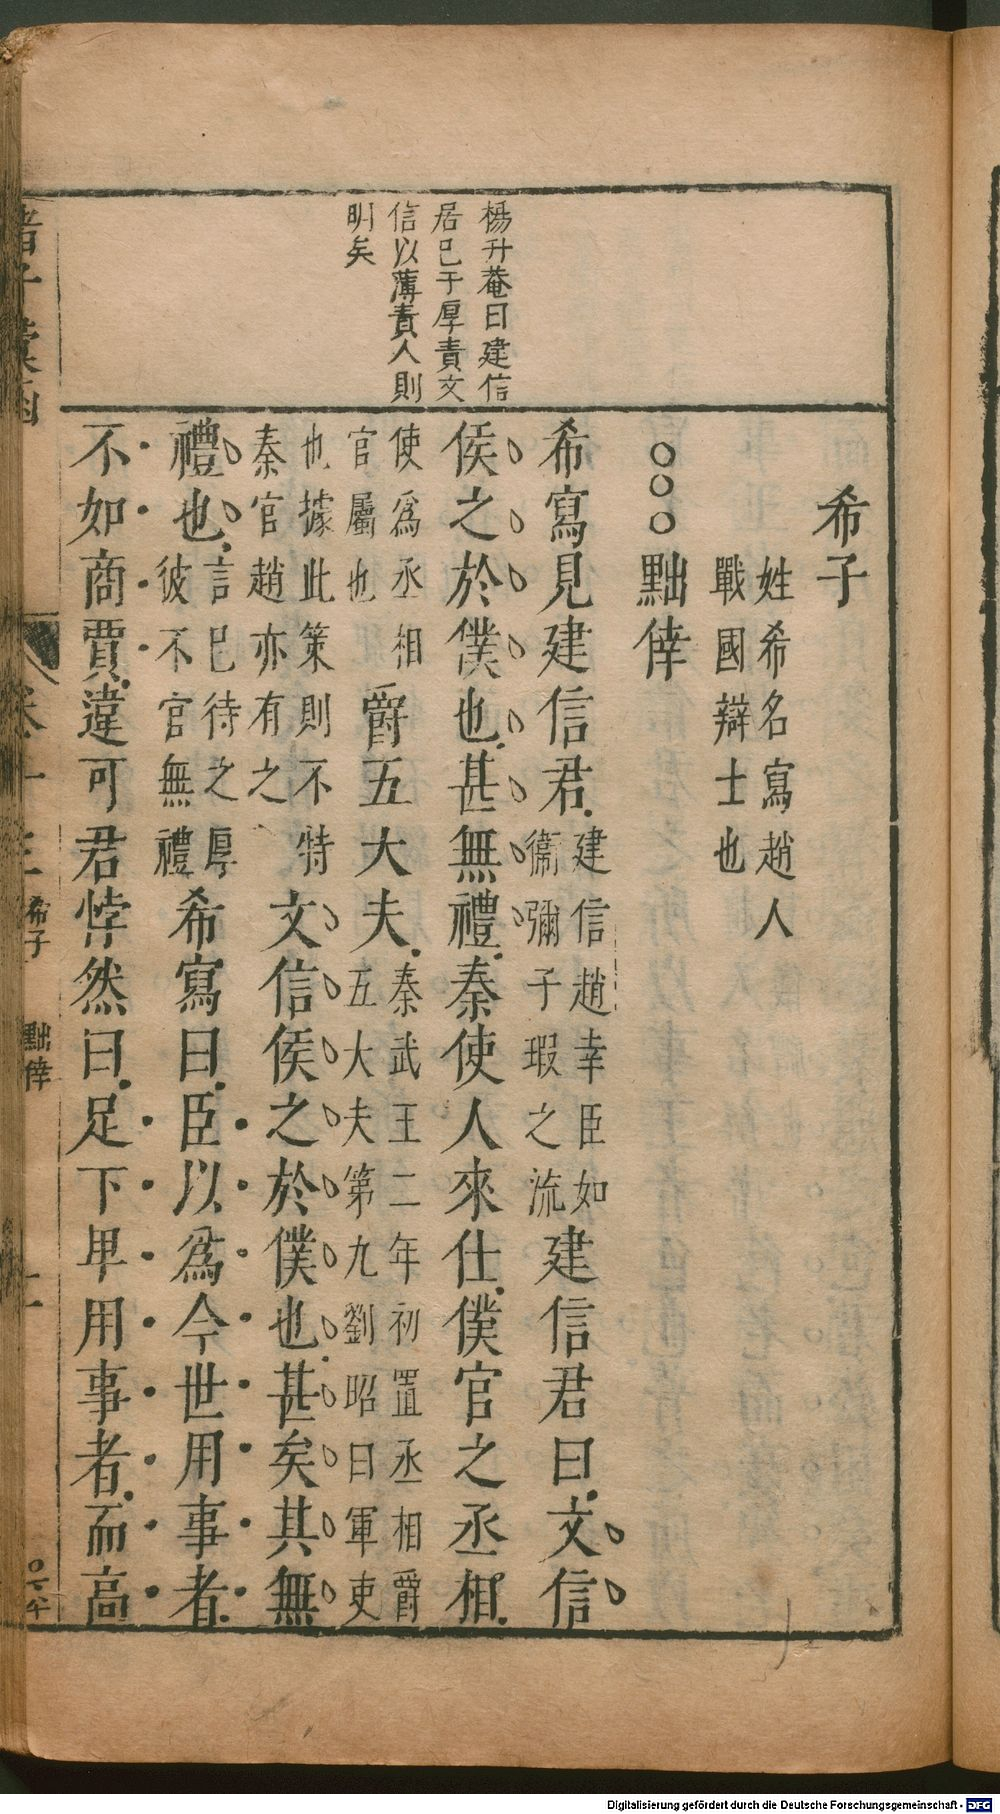 楊升菴曰建信
居已于厚責文
信以薄責人則
明矣
希子
姓希名寫趙人
戰國辯士也
○○○黜倖
希寫見建信君
建信趙幸臣如
衞彌子瑕之流
建信君曰文信
侯之於僕也甚無禮秦使人來仕僕官之丞相
使爲丞相
官屬也
爵五大夫
秦武王二年初置丞相爵
五大夫第九劉昭曰軍吏
也據此策則不特
秦官趙亦有之
文信侯之於僕也甚矣其無
禮也
言已待之厚
彼不官無禮
希寫曰臣以爲今世用事者
不如商賈違可君悖然曰足下卑用事者而高
希子
黜倖
Digitalisierung gefördert durch die Deutsche Forschungsgemeinschaft - DFG